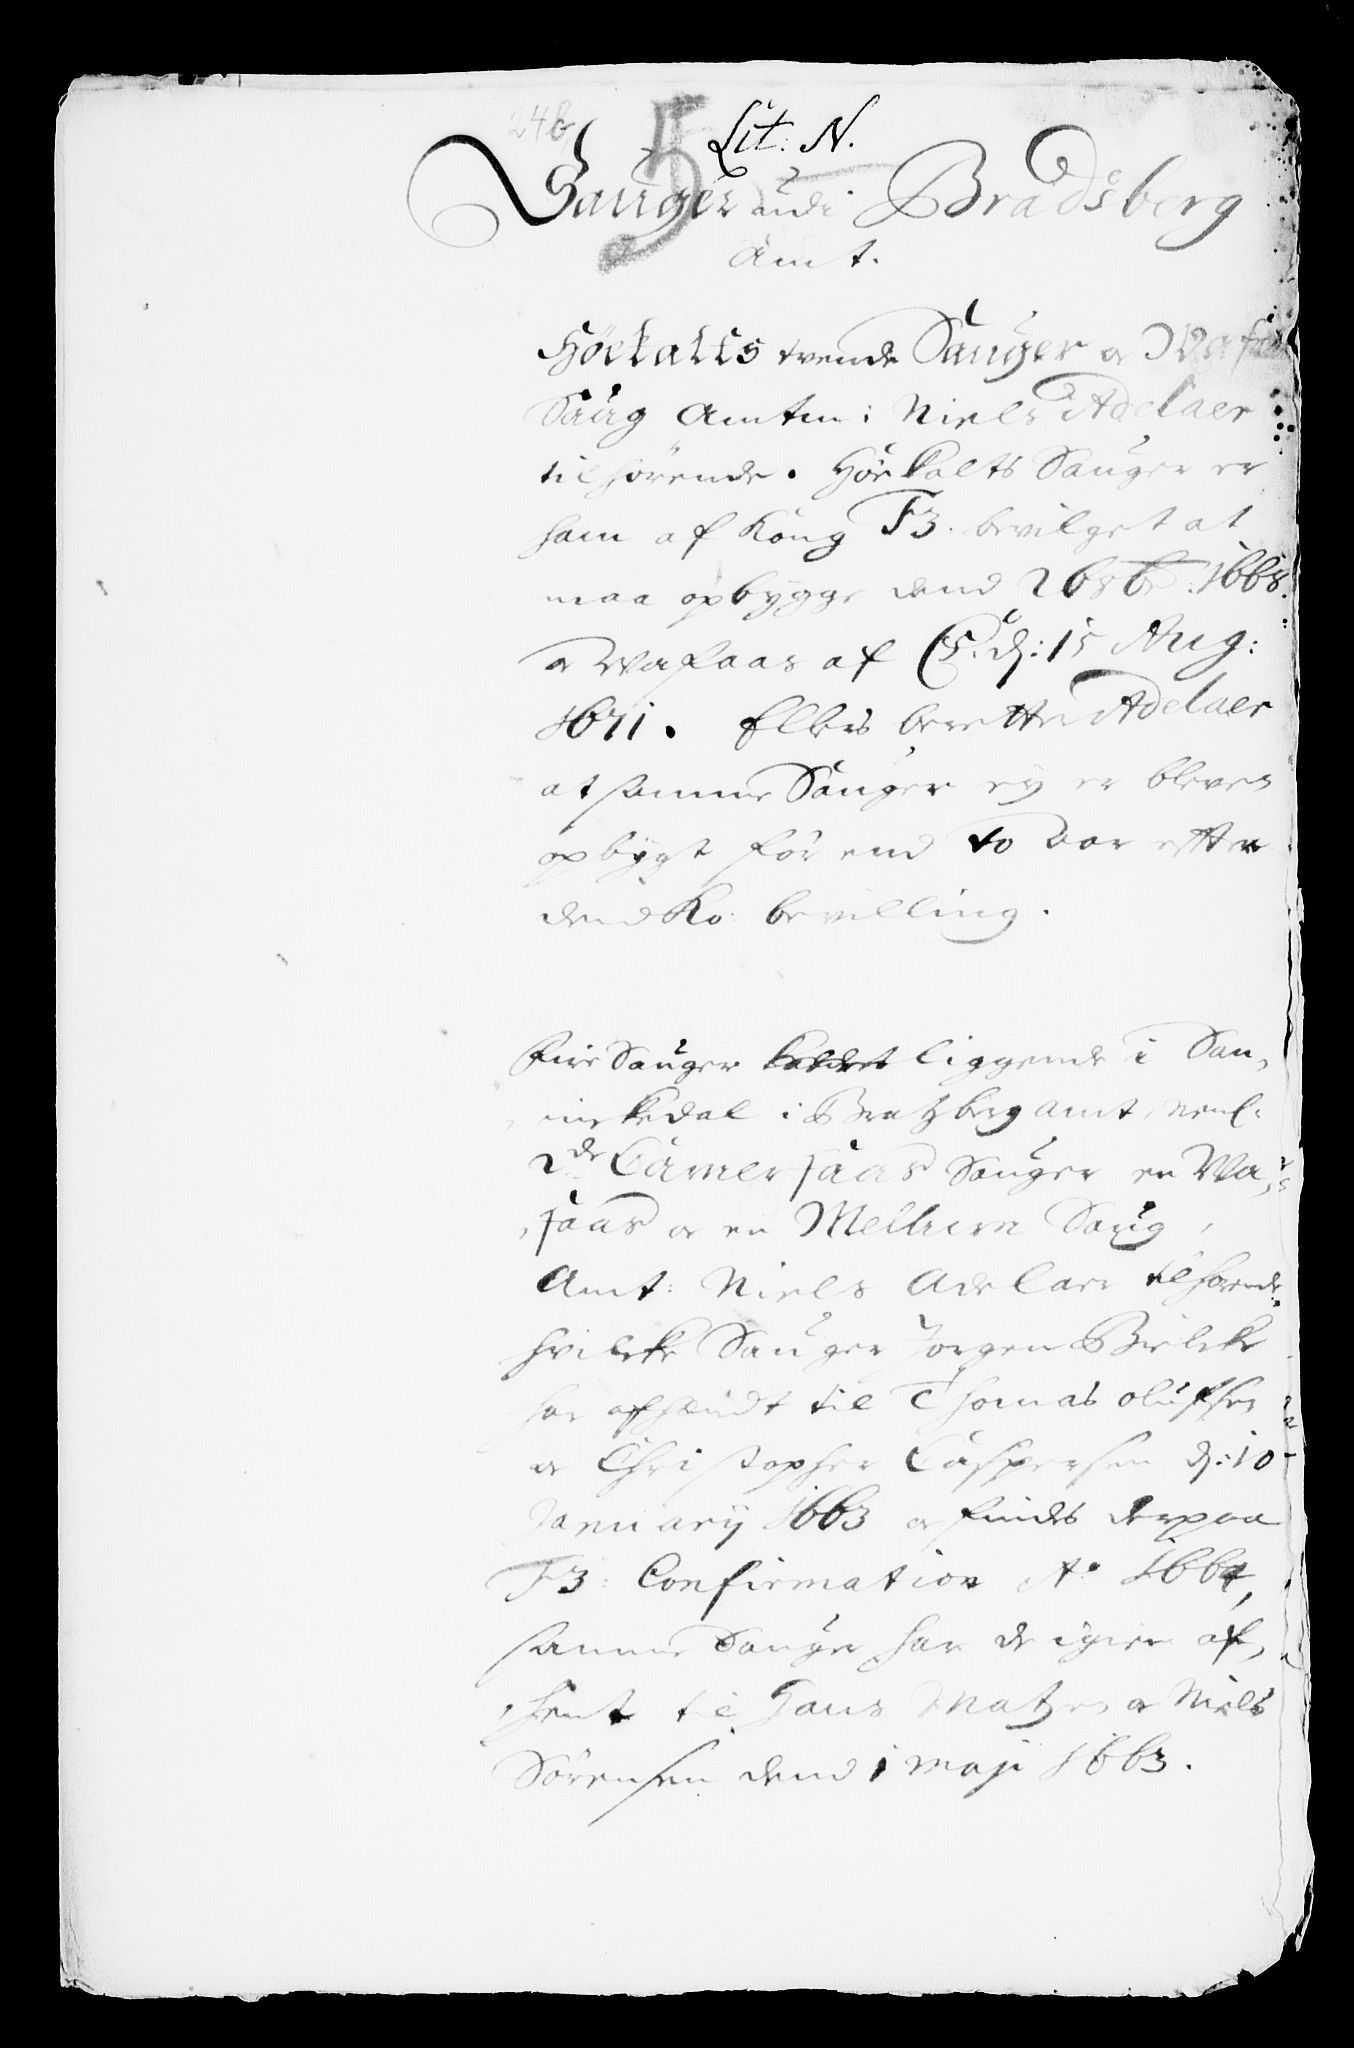 24b
5
Lit: N.
Sauger udi Bradsberg
Amt.
Höekalts tvende Sauger og Wafos
Saug Amtm: Niels Adelaer
tilhörende. Höekalts Sauger er
ham af Kong F3. bevilget at
maa opbygge dend 2 8b: 1668.
og Wafaas af C5. d: 15 Aug:
1671. Ellers beretter Adelaer
at samme Sauger ey er bleven
opbygt för end to Aar efter
dend Ko: bevilling.
Fire Sauger liggende i San,
nikedal i Bratzberg Amt, neml:
2de Camerfaas Sauger en Wa,
faas og en Mellum Saug,
Amt: Niels Adelaer tilhörende.
hvilcke Sauger Jörgen Bielcke
har afhændt til Thomas Olufsen
og Christopher Caspersen d: 10
January 1663 og findes derpaa
F3: Confirmation A° 1664,
samme Sauger har de igien af,
hent til Hans Matzen og Niels
Sörensen dend 1 Maji 1663.